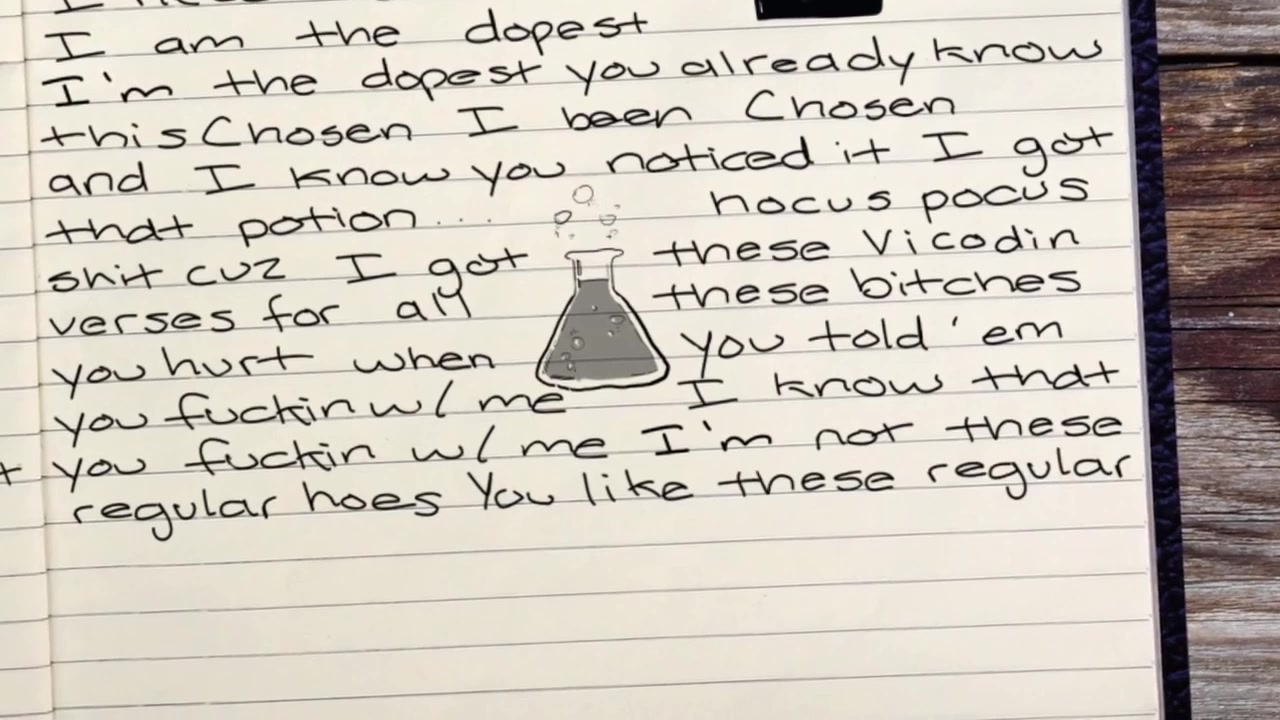 I am the dopest
I'm the dopest you already know
this Chosen I been Chosen
and I know you noticed it I got
that potion.... hocus pocus
shit cuz I got these Vicodin
verses for all these bitches
you hurt when you told 'em
you fuckin w/ me I know that
you fuckin w/ me I'm not these
regular hoes You like these regular